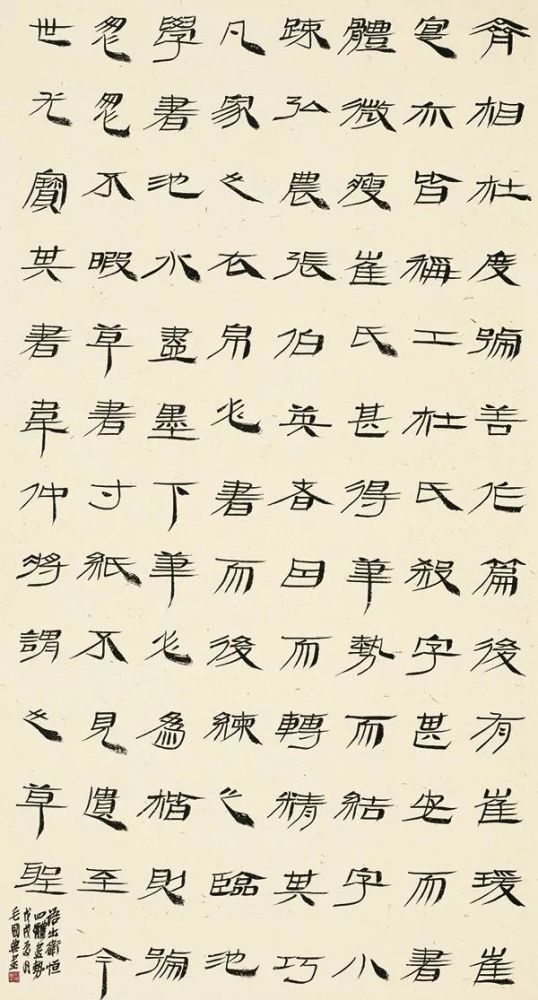 齊相杜度號善作篇後有崔瑗崔
寔亦皆稱工杜氏殺字甚安而書
體微瘦崔氏甚得筆勢而結字小
疎弘農張伯英者因而轉精其巧
凡家之衣帛必書而後練之臨池
學書池水盡墨下筆必爲楷則號
怱怱不暇草書寸紙不見遺至今
世尤寶其書韋仲將謂之草聖
語出衛恒
四體書勢
戊戌月
毛國典書